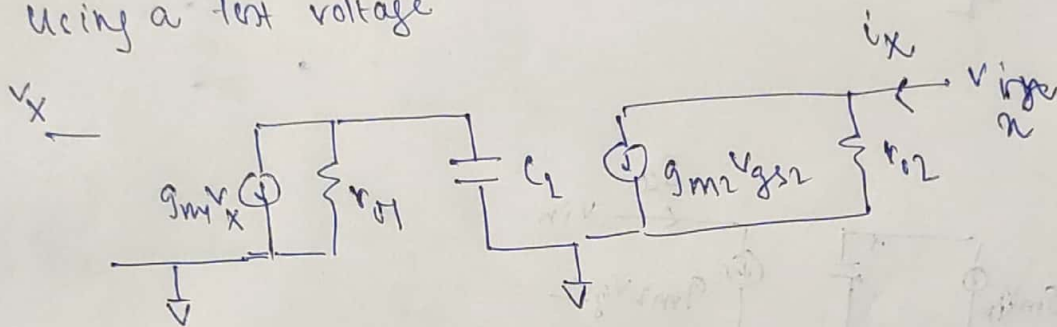 Using a test voltage
i_x
v_x
g_m1 v_x
r_01
C_1
g_m2 v_gs2
r_02
x